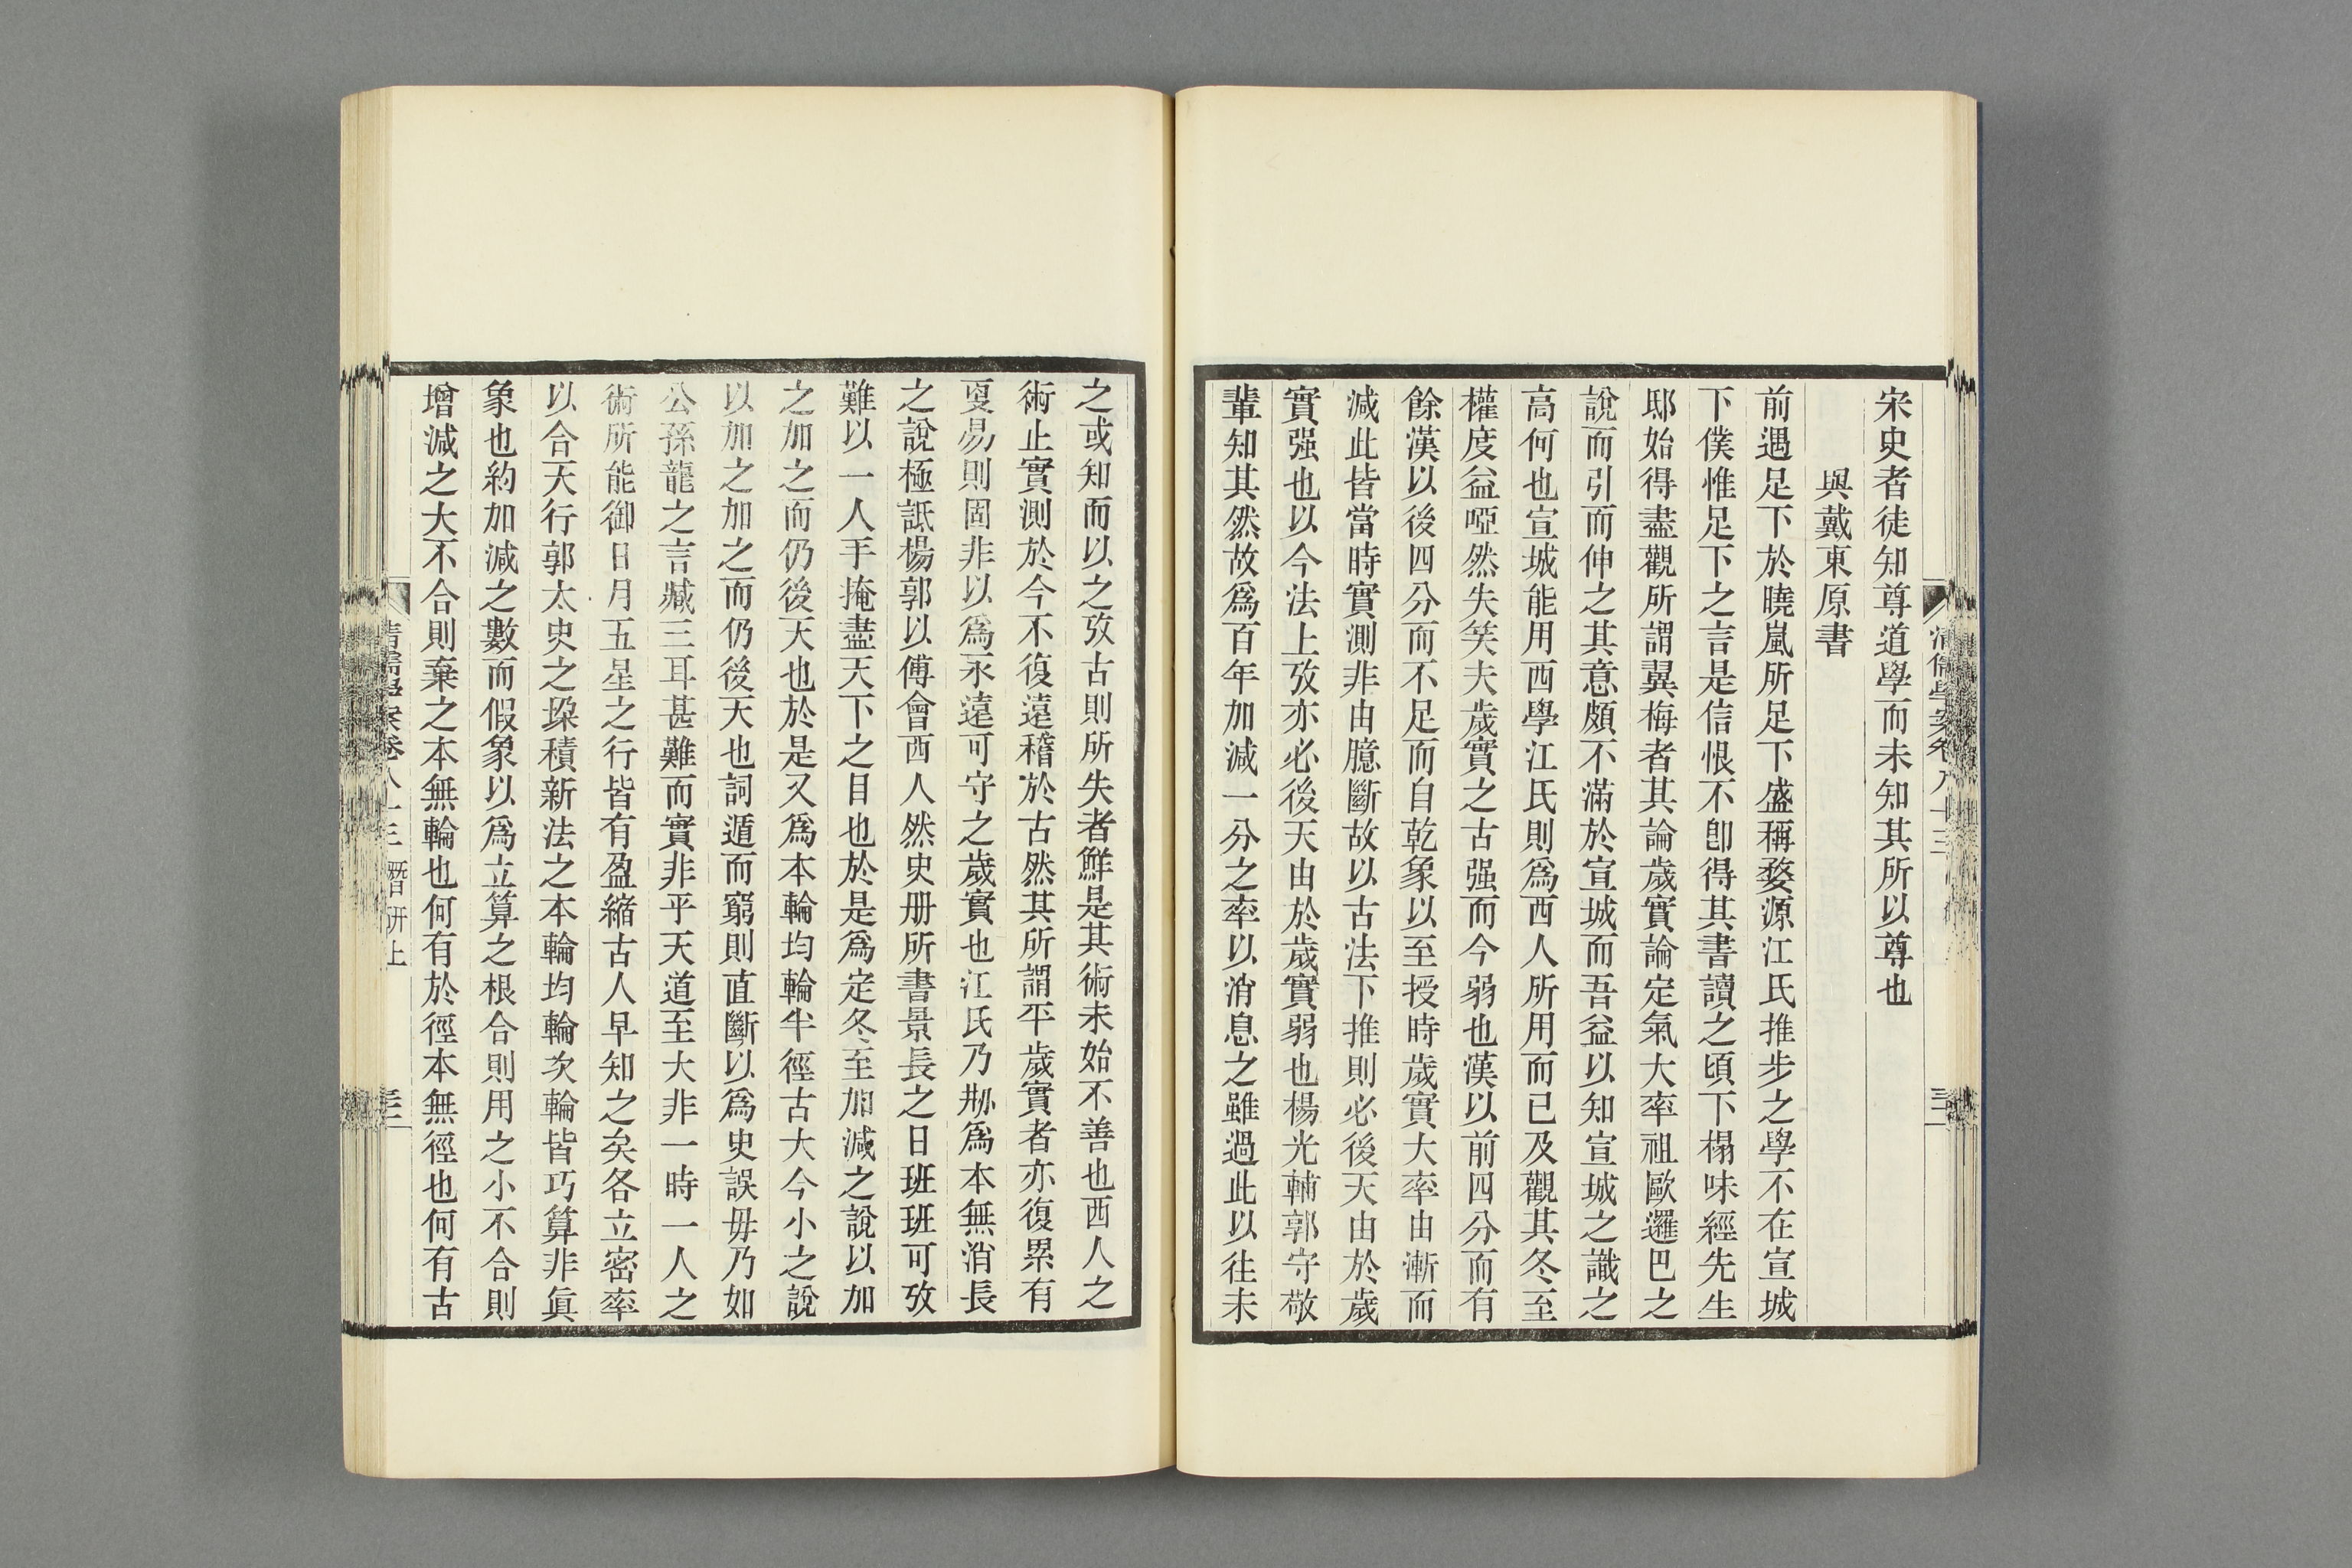 宋史者徒知尊道學而未知其所以尊也
與戴東原書
前遇足下於曉嵐所足下盛稱婺源江氏推步之學不在宣城
下僕惟足下之言是信恨不卽得其書讀之頃下榻味經先生
邸始得盡觀所謂翼梅者其論歲實論定氣大率祖歐邏巴之
說而引而伸之其意頗不滿於宣城而吾益以知宣城之識之
高何也宣城能用西學江氏則爲西人所用而已及觀其冬至
權度益啞然失笑夫歲實之古强而今弱也漢以前四分而有
餘漢以後四分而不足而自乾象以至授時歲實大率由漸而
減此皆當時實測非由臆斷故以古法下推則必後天由於歲
實强也以今法上攷亦必後天由於歲實弱也楊光輔郭守敬
輩知其然故爲百年加減一分之率以消息之雖過此以往未
之或知而以之攷古則所失者鮮是其術未始不善也西人之
術止實測於今不復遠稽於古然其所謂平歲實者亦復累有
更易則固非以爲永遠可守之歲實也江氏乃刱爲本無消長
之說極詆楊郭以傅會西人然史册所書景長之日班班可攷
難以一人手掩盡天下之目也於是爲定冬至加減之說以加
之加之而仍後天也於是又爲本輪均輪半徑古大今小之說
以加之加之而仍後天也詞遁而窮則直斷以爲史誤毋乃如
公孫龍之言臧三耳甚難而實非乎天道至大非一時一人之
術所能御日月五星之行皆有盈縮古人早知之矣各立密率
以合天行郭太史之垜積新法之本輪均輪次輪皆巧算非眞
象也約加減之數而假象以爲立算之根合則用之小不合則
增減之大不合則棄之本無輪也何有於徑本無徑也何有古
清儒學案卷八十三 潛研上